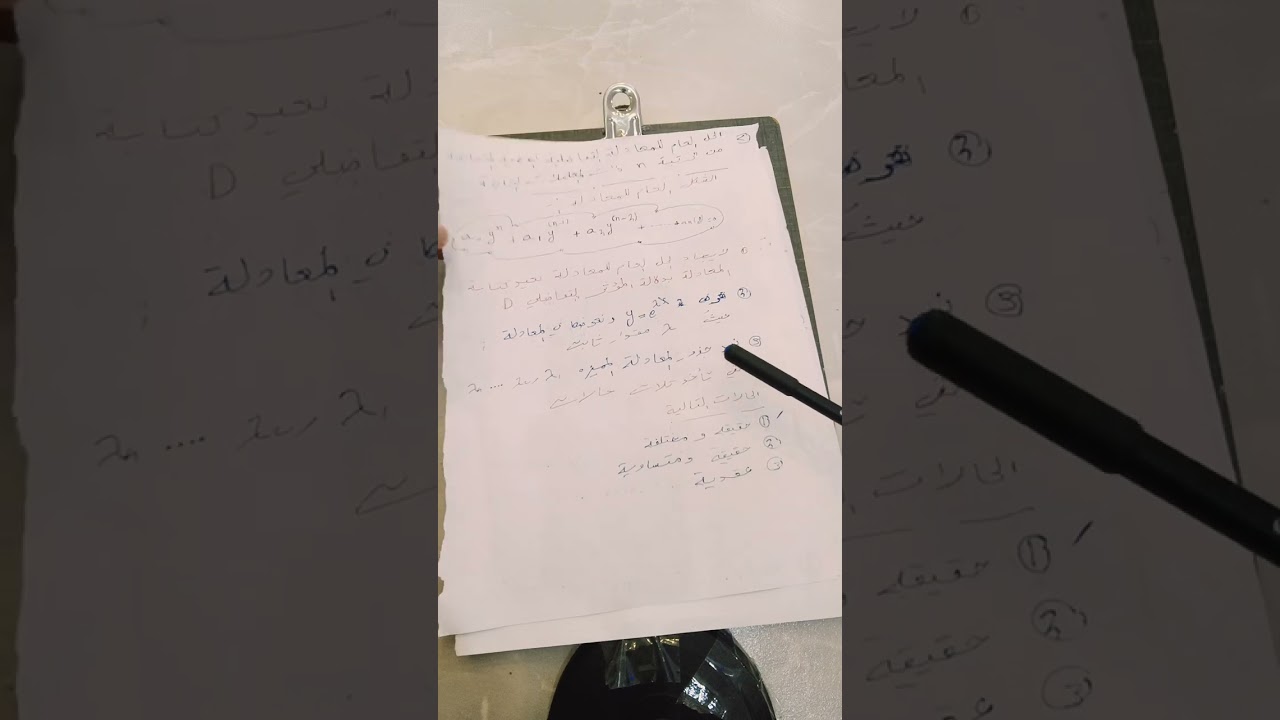 ② الحل العام للمعادلة التفاضلية
من الرتبة n
الشكل العام للمعادلة
a₀ yⁿ + a₁ y⁽ⁿ⁻¹⁾ + a₂ y⁽ⁿ⁻²⁾ + ......
① لايجاد الحل العام للمعادلة نعيد كتابة
المعادلة بدلالة المؤثر التفاضلي D
② نفرض y = e^λx ونعوضها في المعادلة :
حيث λ مقدار ثابت
③ جذور المعادلة المميزة λ₁ , λ₂ , .... λₙ
تأخذ ثلاث حالات
الحالات التالية
① حقيقية ومختلفة
② حقيقية ومتساوية
③ عقدية